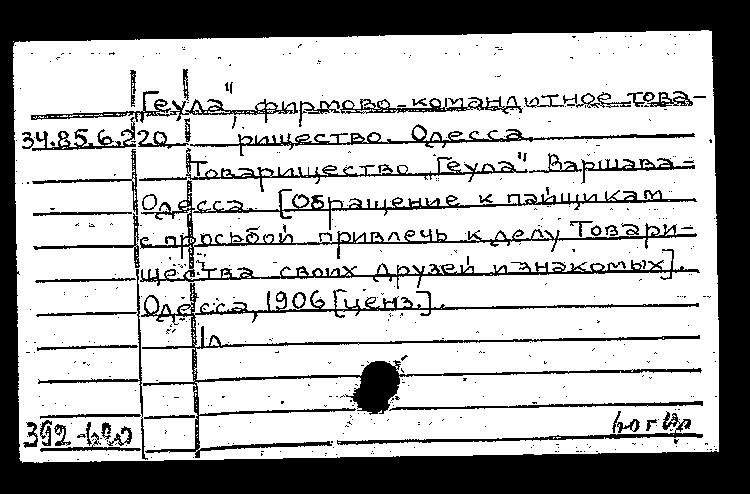 „Геула", фирмово-командитное това-
34.85.6.220. рищество. Одесса.
Товарищество „Геула" Варшава-
Одесса. [Обращение к пайщикам
с просьбой привлечь к делу Товари-
щества своих друзей и знакомых].
Одесса, 1906 [ценз.].
1л.